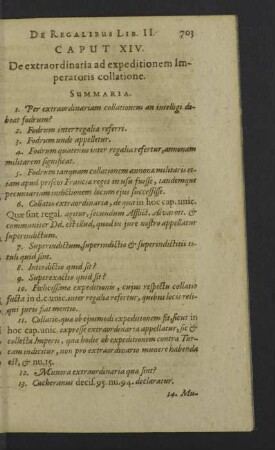 DE REGALIBUS LIB. II. 703
CAPUT XIV.
De extraordinaria ad expeditionem Im-
peratoris collatione.
SUMMARIA.
1. Per extraordinariam collationem an intelligi de-
beat fodrum?
2. Fodrum inter regalia referri.
3. Fodrum unde appelletur.
4. Fodrum quatenus inter regalia refertur, annonam
militarem significat.
5. Fodrum tanquam collationem annonæ militaris et-
iam apud priscos Franciæ reges in usu fuisse, tandemque
pecuniariam indictionem locum ejus successisse.
6. Collatio extraordinaria, de qua in hoc cap. unic.
Quæ sint regal. agitur, secundum Afflict. Alvarott. &
communiter Dd. est illud, quod in jure nostro appellatur
superindictum.
7. Superindictum, superindictio & superindictitii ti-
tuli quid sint.
8. Interdictio quid sit?
9. Superexactio quid sit?
10. Felicissima expeditionis, cujus respectu collatio
facta in d.c. unic. inter regalia refertur, quibus locis reli-
qui juris fiat mentio.
11. Collatio, quæ ob ejusmodi expeditionem fit, sicut in
hoc cap. unic. expresse extraordinaria appellatur, sic &
collecta Imperii, quæ hodie ob expeditionem contra Tur-
cam indicitur, non pro extraordinario munere habenda
est, & nu. 15.
12. Munera extraordinaria quæ sint?
13. Cacheranus decis. 95. nu. 94. declaratur.
14. Mu-